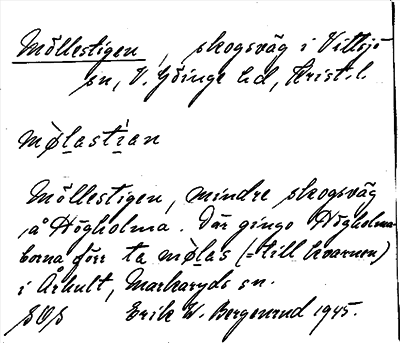 Möllestigen, skogsväg i Vittsjö
sn, V. Göinge hd, Krist. l.
mølastian
Möllestigen, mindre skogsväg
å Högholma. Där gingo Högholma-
borna förr ta mølas (= till kvarnen)
i Århult, Markaryds sn.
Erik W. Bergenrud 1945.